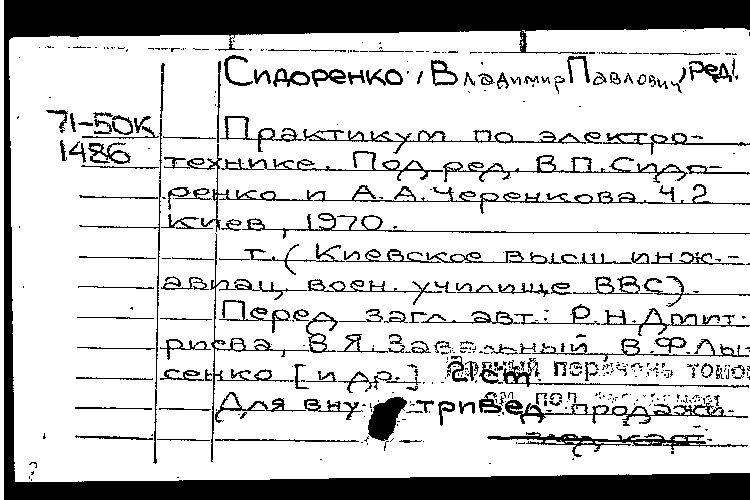 Сидоренко, Владимир Павлович, ред.
71-50К
1486
Практикум по электро-
технике. Под ред. В.П.Сидо-
ренко и А.А.Черенкова. Ч.2
Киев, 1970.
т. (Киевское высш. инж.-
авиац. воен. училище ВВС).
Перед загл. авт.: Р.Н.Дмит-
риева, В.Я.Завальный, В.Ф.Лы-
сенко [и др.]
перечень томов
Для внутривед. продажи.
след. карт.